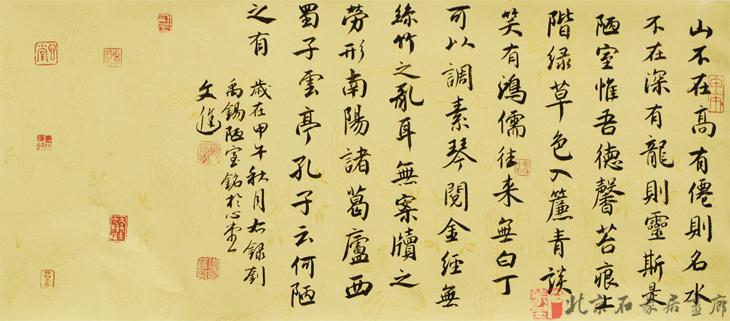 山不在高有僊則名水
不在深有龍則靈斯是
陋室惟吾德馨苔痕上
階緑草色入簾青談
笑有鴻儒往来無白丁
可以調素琴閱金經無
絲竹之亂耳無案牘之
勞形南陽諸葛廬西
蜀子雲亭孔子云何陋
之有
歲在甲午秋月右録劉
禹錫陋室銘於心
文進
北京石居畫廊